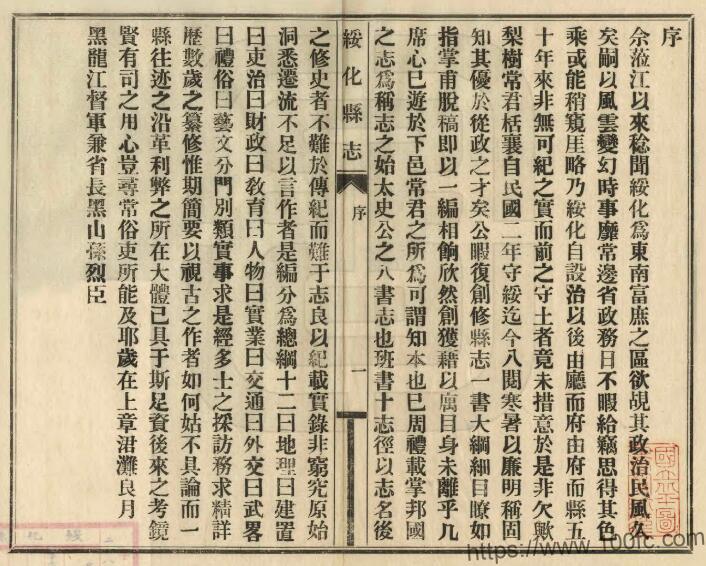 序
余蒞江以來稔聞綏化爲東南富庶之區欲覘其政治民風久
矣嗣以風雲變幻時事靡常邊省政務日不暇給竊思得其色
乘或能稍窺厓略乃綏化自設治以後由廳而府由府而縣五
十年來非無可紀之實而前之守土者竟未措意於是非欠歟
梨樹常君栝襄自民國二年守綏迄今八閱寒暑以廉明稱固
知其優於從政之才矣公暇復創修縣志一書大綱細目瞭如
指掌甫脫稿即以一編相餉欣然創獲藉以寓目身未離乎几
席心已遊於下邑常君之所爲可謂知本也已周禮載掌邦國
之志爲稱志之始太史公之八書志也班書十志徑以志名後
綏化縣志
序
一
之修史者不難於傳紀而難于志良以紀載實錄非窮究原始
洞悉遷流不足以言作者是編分爲總綱十二曰地理曰建置
曰吏治曰財政曰敎育曰人物曰實業曰交通曰外交曰武畧
曰禮俗曰藝文分門別類實事求是經多士之採訪務求精詳
歷數歲之纂修惟期簡要以視古之作者如何姑不具論而一
縣往迹之沿革利弊之所在大體已具于斯足資後來之考鏡
賢有司之用心豈尋常俗吏所能及耶歲在上章涒灘良月
黑龍江督軍兼省長黑山孫烈臣
https://www.100fc.com